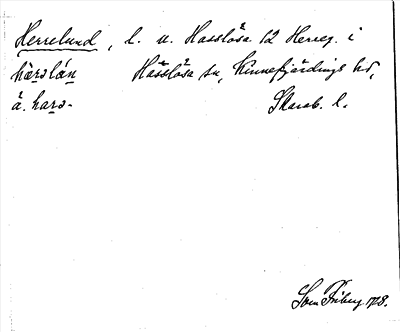 Herrelund, l. u. Hasslösa 12 Herreg. i
hærslǽn Hässlösa sn, Kinnefjärdings hd,
ä. hars- Skarab. l.
Som Friberg 1728.